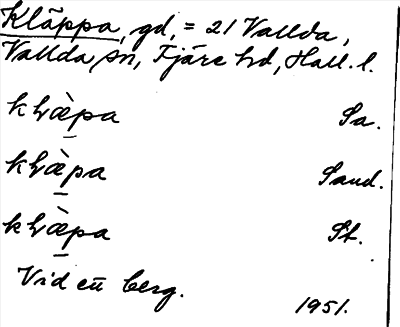 Kläppa, gd, = 21 Vallda,
Vallda sn, Fjäre hd, Hall. l.
kḷæ̀p̠a Sa.
kḷæ̀p̠a Sand.
kḷæ̀p̠a St.
Vid en̄ berg.
1951.